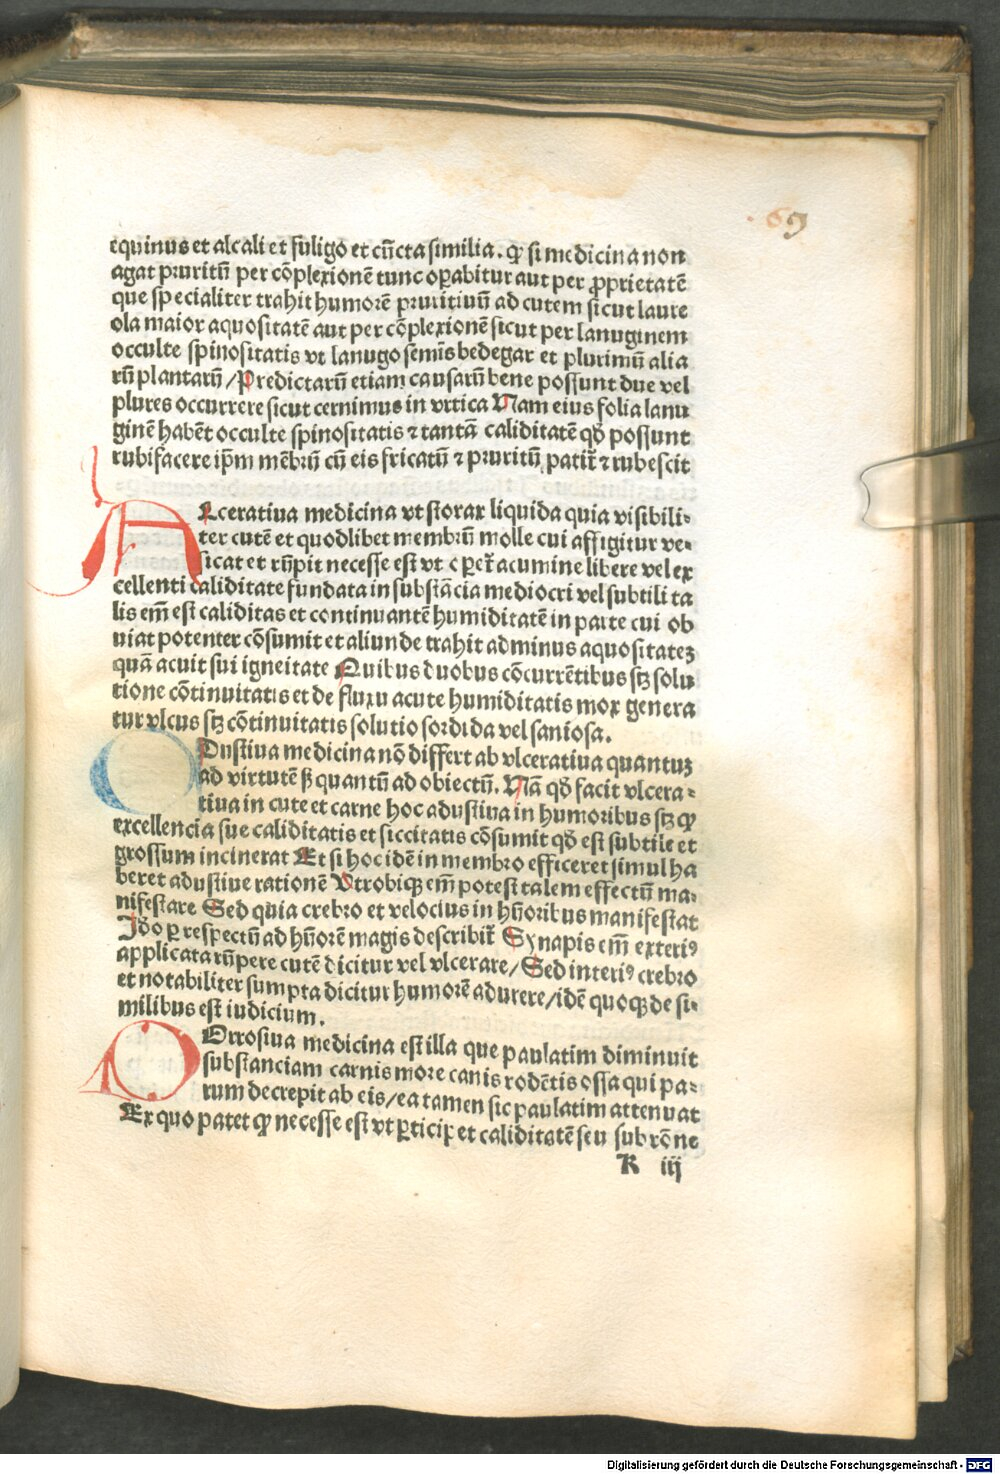 69
equinus et alcali et fuligo et cūcta similia. ꝙ si medicina non
agat pruritū per cōplexionē tunc oꝑabitur aut per ꝓprietatē
que specialiter trahit humorē pruritiuū ad cutem sicut laure
ola maior aquositatē aut per cōplexionē sicut per lanuginem
occulte spinositatis vt lanugo semīs bedegar et plurimū alia
rū plantarū / Predictarū etiam causarū bene possunt due vel
plures occurrere sicut cernimus in vrtica Nam eius folia lanu
ginē habēt occulte spinositatis ⁊ tantā caliditatē qđ possunt
rubifacere ip̄m mēbrū cū eis fricatū ⁊ pruritū patit̄ ⁊ rubescit
Vlceratiua medicina vt storax liquida quia visibili⸗
ter cutē et quodlibet membrū molle cui affigitur ve⸗
sicat et rūpit necesse est vt c ꝑcet̄ acumine libere vel ex
cellenti caliditate fundata in substācia mediocri vel subtili ta
lis em̄ est caliditas et continuantē humiditatē in parte cui ob
uiat potenter cōsumit et aliunde trahit ad minus aquositateꝫ
quā acuit sui igneitate Quibus duobus cōcurrētibus stꝫ solu
tione cōtinuitatis et de fluxu acute humiditatis mox genera
tur vlcus stꝫ cōtinuitatis solutio sordida vel saniosa.
Dustiua medicina nō differt ab vlceratiua quantuꝫ
ad virtutē ꝭ quantū ad obiectū. Nā qđ facit vlcera⸗
tiua in cute et carne hoc adustiua in humoribus stꝫ ꝙ
excellencia sue caliditatis et siccitatis cōsumit qđ est subtile et
grossum incinerat Et si hoc idē in membro efficeret simul ha
beret adustiue rationē Vtrobiqꝫ em̄ potest talem effectū ma⸗
nifestare Sed quia crebro et velocius in hūoribus manifestat
Iđo ꝑ respectū ad hūorē magis describit̄ Synapis em̄ exteriꝰ
applicata rūpere cutē dicitur vel vlcerare / Sed interiꝰ crebro
et notabiliter sumpta dicitur humorē adurere / idē quoqꝫ de si⸗
milibus est iudicium.
Orrosiua medicina est illa que paulatim diminuit
substanciam carnis more canis rodētis ossa qui pa⸗
rum decrepit ab eis / ea tamen sic paulatim attenuat
Ex quo patet ꝙ necesse est vt ꝑticipet caliditatē seu sub rōne
K iij
Digitalisierung gefördert durch die Deutsche Forschungsgemeinschaft - DFG